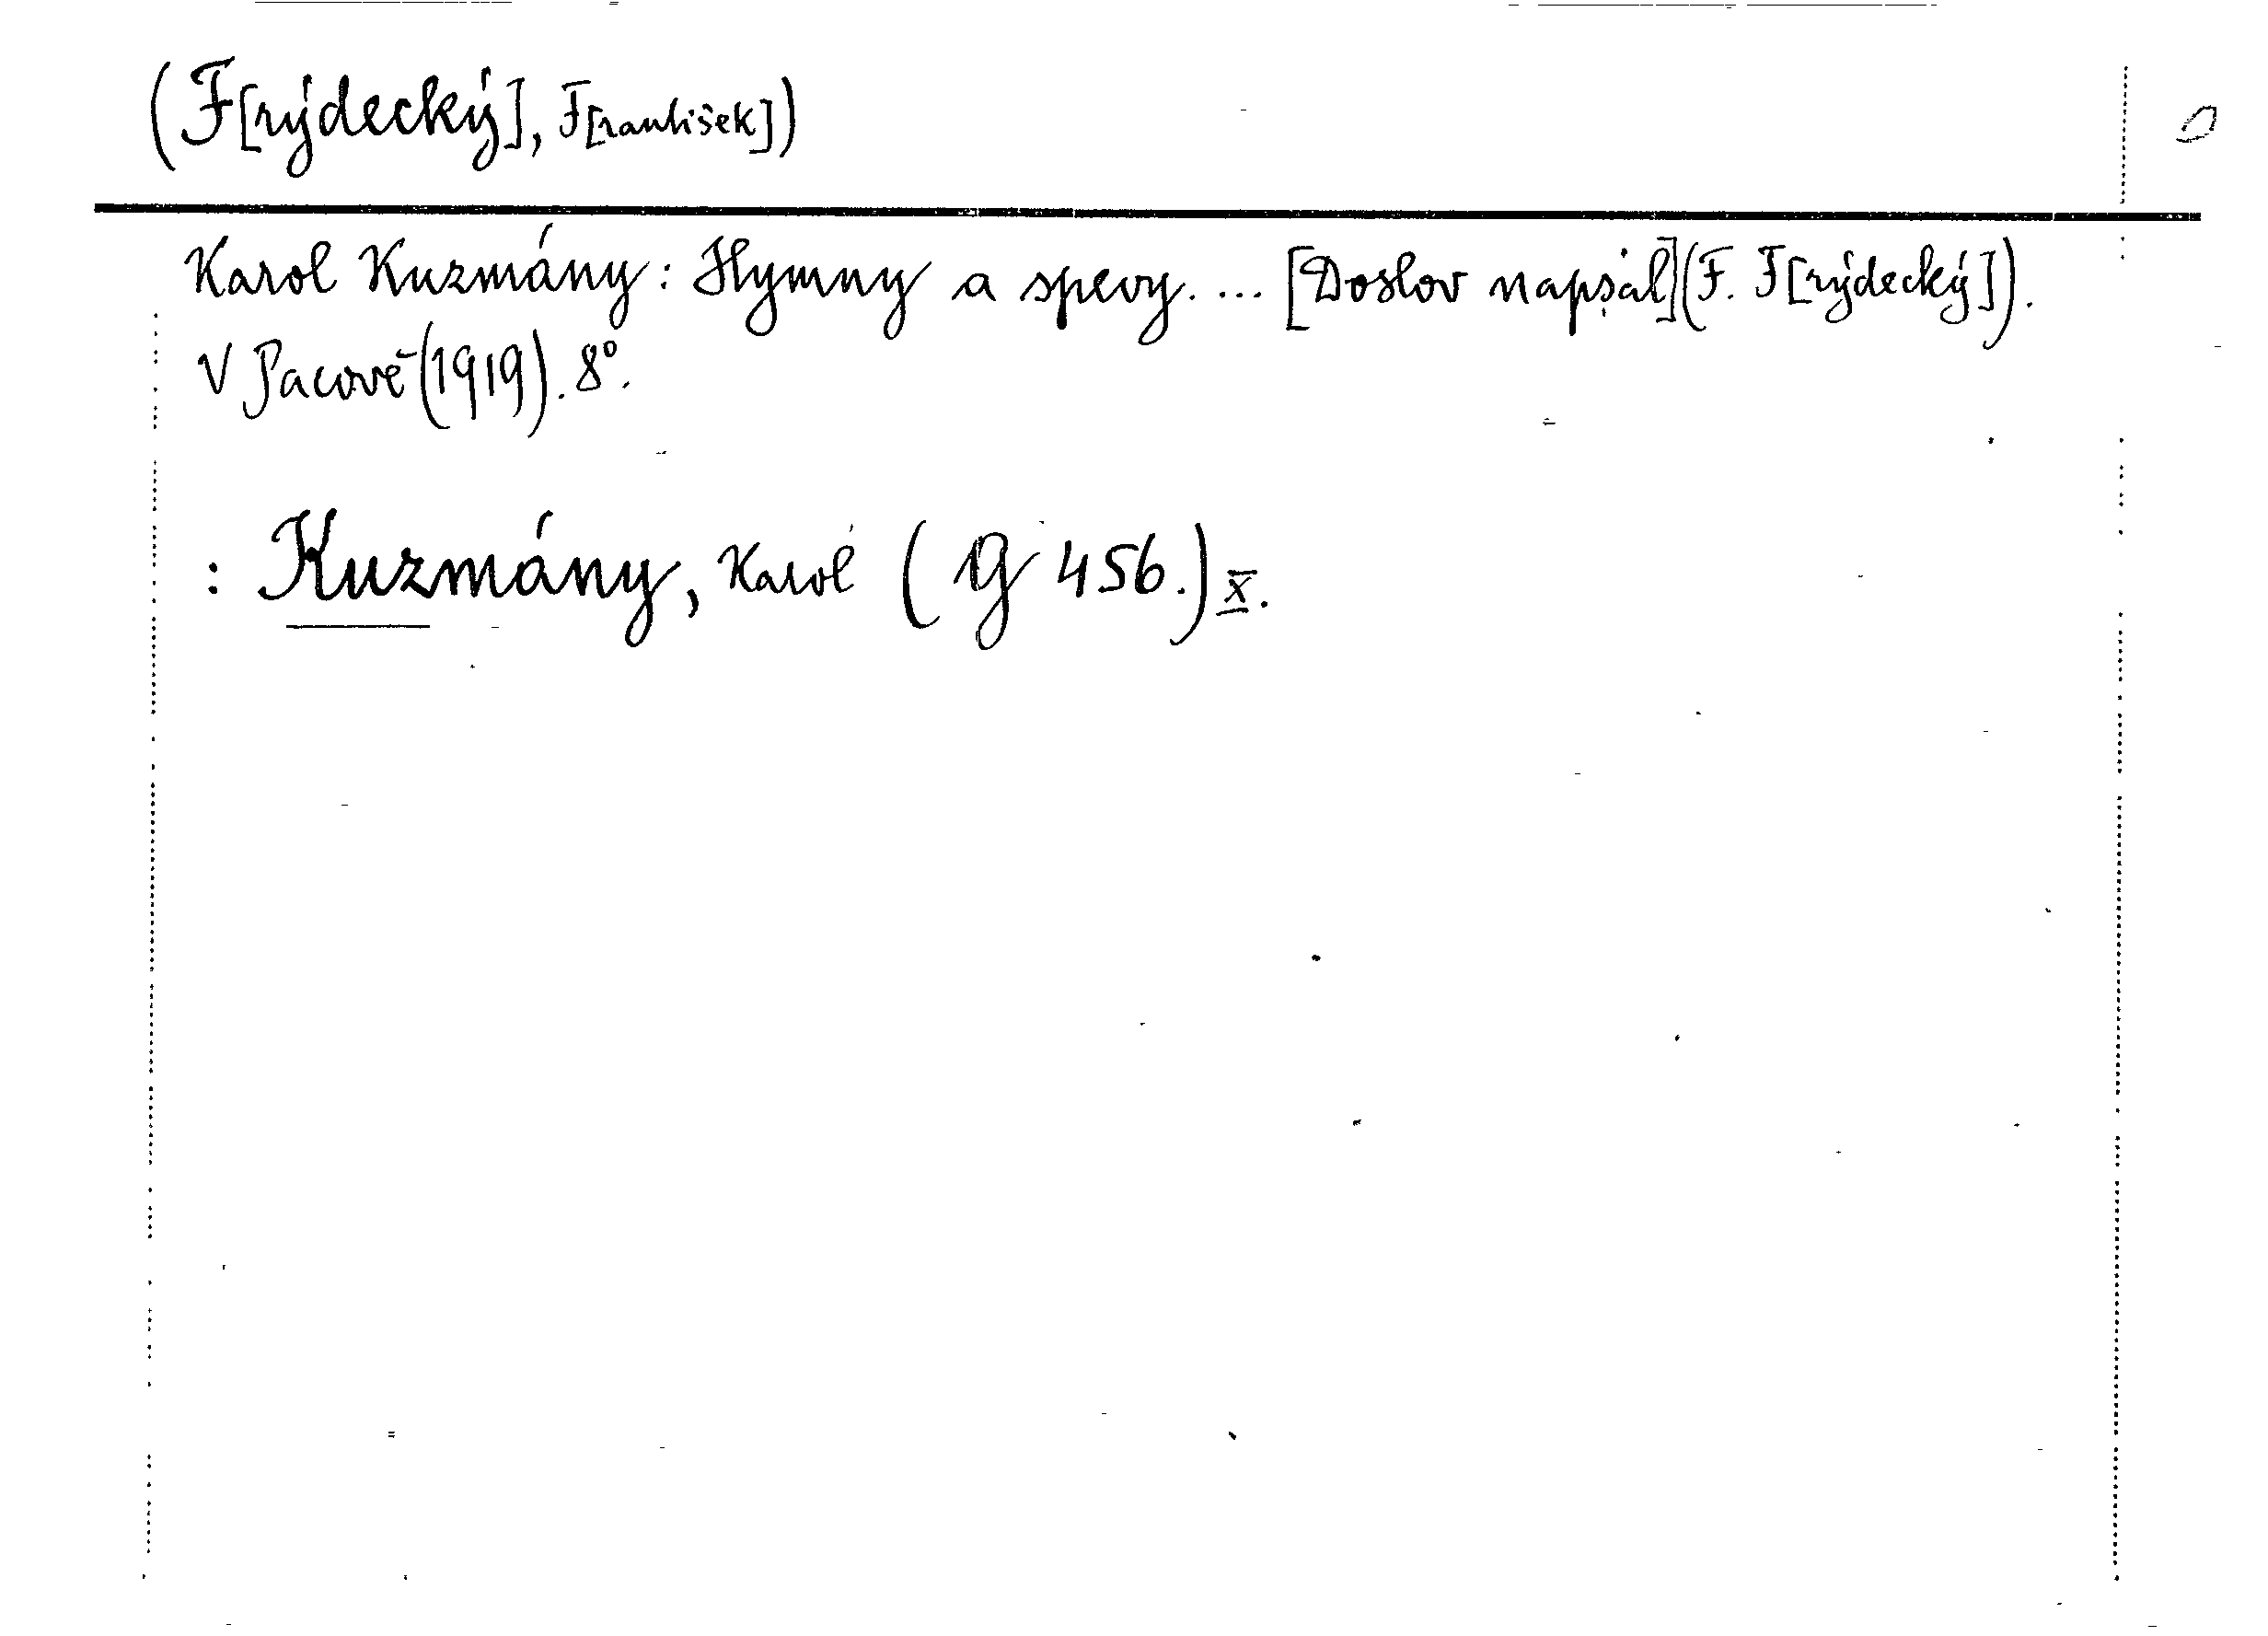 (F[rýdecký], F[rantišek])
Karol Kuzmány: Hymny a spevy. ... [Doslov napsal] (F. F[rýdecký]).
V Pacově (1919). 8°.
: Kuzmány, Karol (G 456.) X.